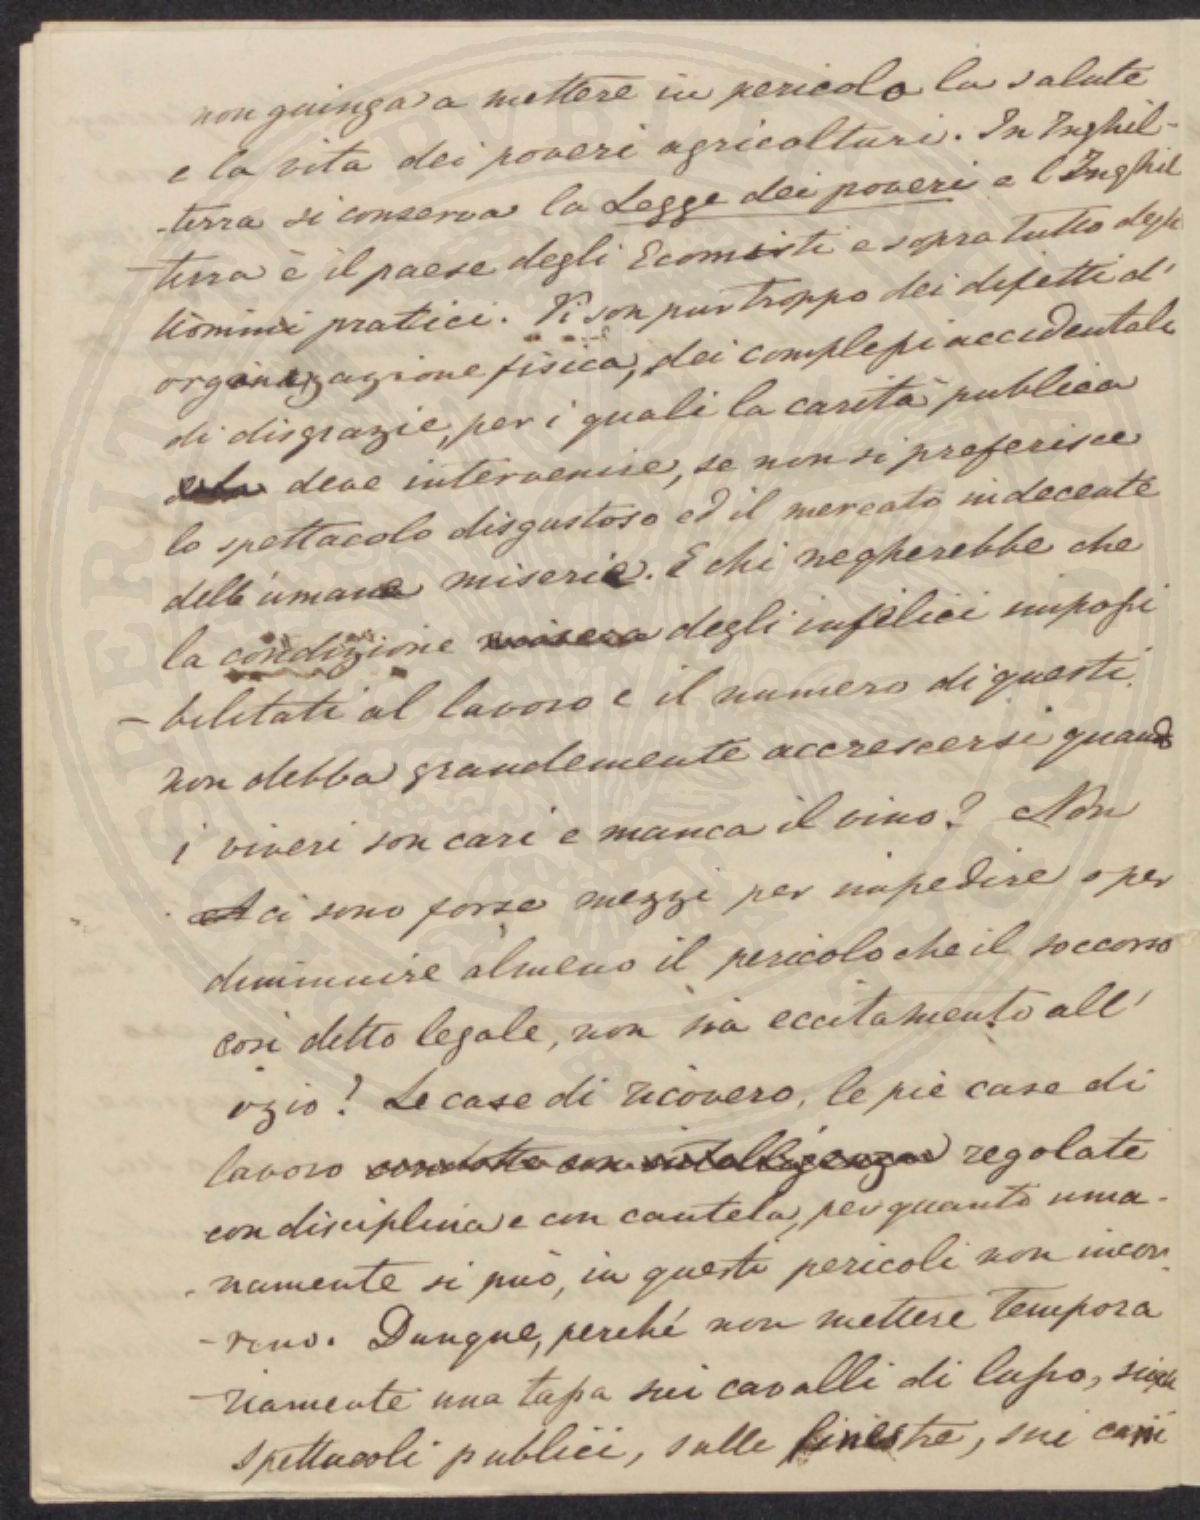 non giunga a mettere in pericolo la salute
e la vita dei poveri agricolturi. In Inghil-
-terra si conserva la Legge dei poveri e l'Inghil
-terra è il paese degli Ecomisti e sopratutto degli
uomini pratici. Vi son pur troppo dei difetti d'
organizzazione fisica, dei complessi accidentali
di disgrazie, per i quali la carità publica
deve intervenire, se non si preferisce
lo spettacolo disgustoso ed il mercato indecente
delle umane miserie. E chi negherebbe che
la condizione misera degli infelici impossi
-bilitati al lavoro e il numero di questi
non debba grandemente accrescersi quando
i viveri son cari e manca il vino? Non
ci sono forse mezzi per impedire o per
diminuire almeno il pericolo che il soccorso
così detto legale, non sia eccitamento all'
ozio? Le case di ricovero, le pie case di
lavoro condotte con intelligenza regolate
con disciplina e con cautela, per quanto uma-
-namente si può, in questi pericoli non incor
-rono. Dunque, perché non mettere tempora
-riamente una tassa sui cavalli di lusso, sugli
spettacoli publici, sulle finestre, sui cani